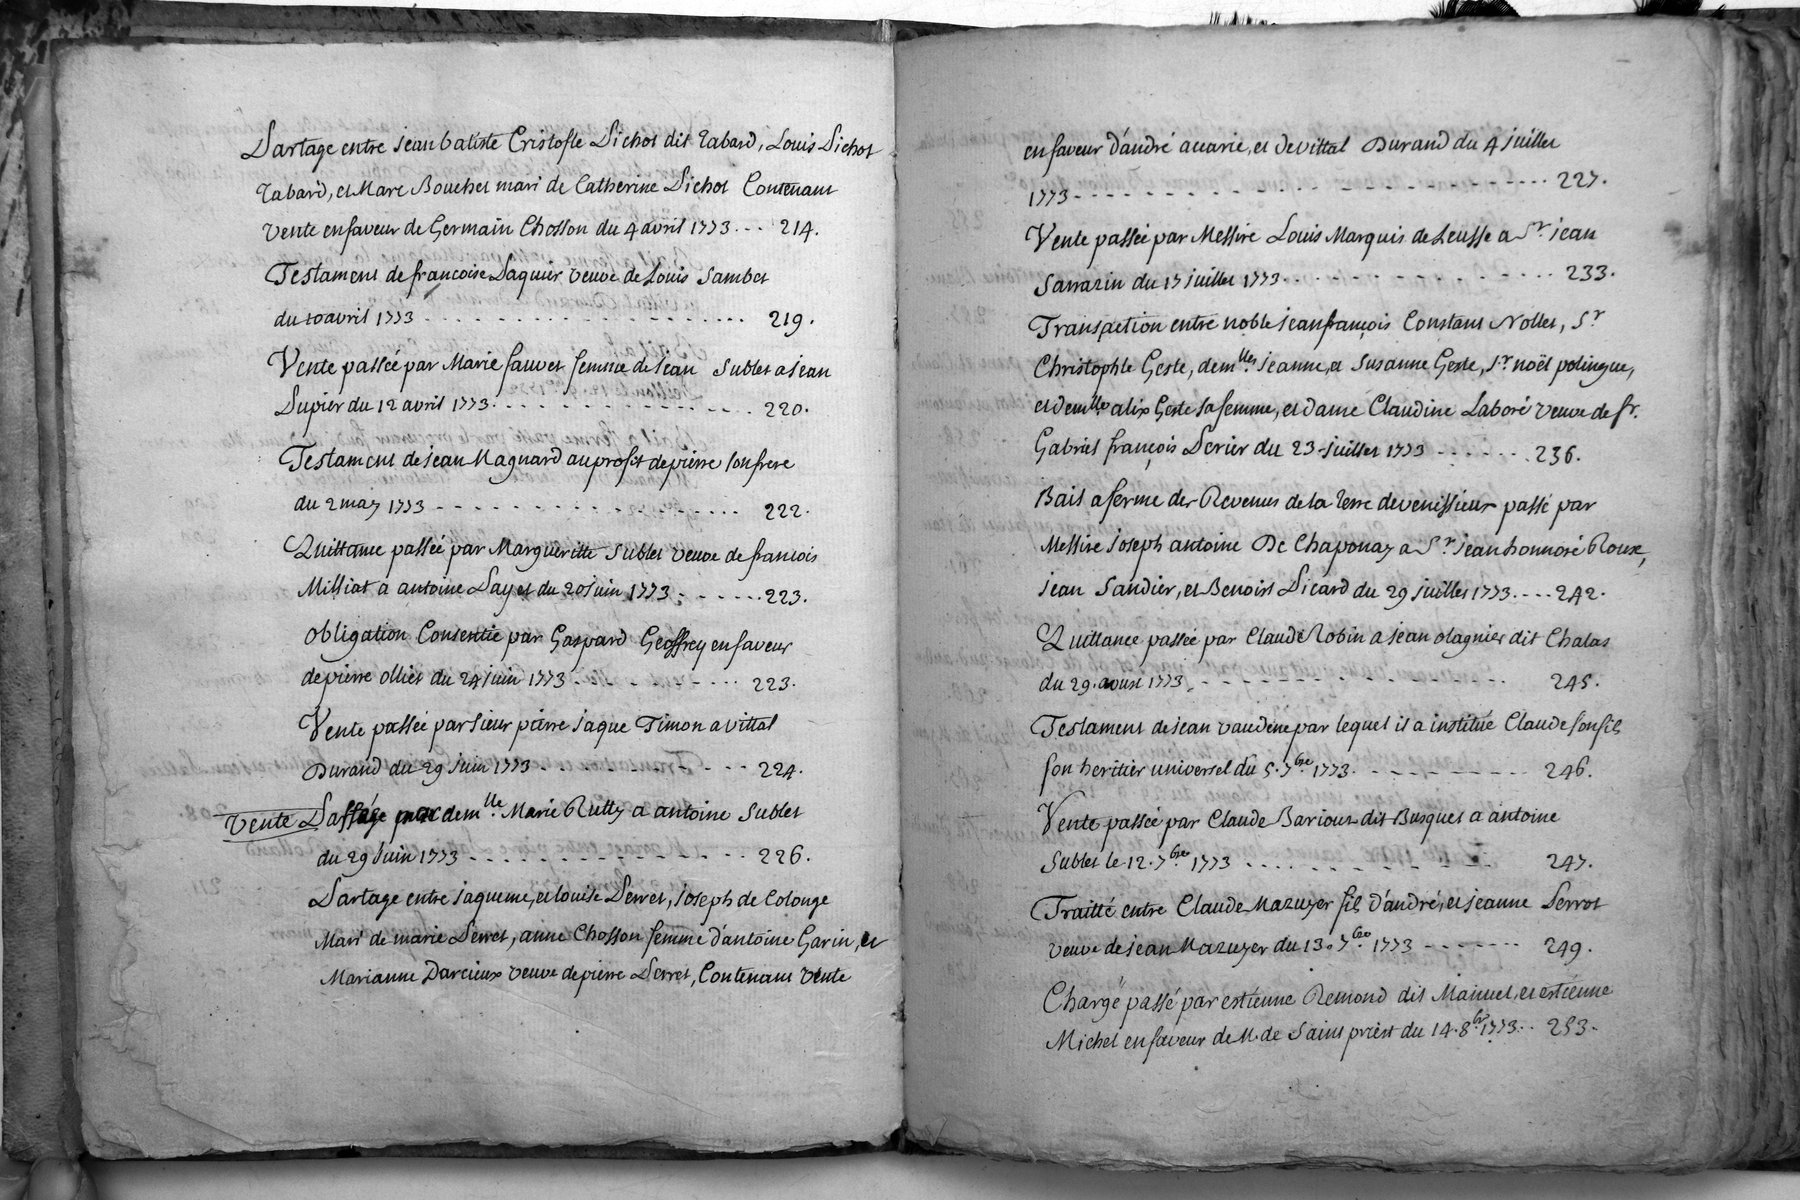 Partage entre jean batiste Cristofle Pichot dit Tabard, Louis Pichot
Tabard, et Marc Bouchet mari de Catherine Pichot Contenant
vente en faveur de Germain Chosson du 4 avril 1773 . . . 214.
Testament de francoise Paquier veuve de Louis Sambet
du 10 avril 1773 . . . 219.
Vente passée par Marie fauvet femme de jean Sublet a jean
Dupier du 12 avril 1773 . . . 220.
Testament de jean Magnard au profit de pierre son frere
du 2 may 1773 . . . 222.
Quittance passée par Margueritte Sublet veuve de francois
Milliat a antoine Payet du 20 juin 1773 . . . 223.
obligation Consentie par Gaspard Geoffrey en faveur
de pierre ollier du 24 juin 1773 . . . 223.
Vente passée par sieur pierre jaque Timon a vittal
Durand du 29 juin 1773 . . . 224.
Vente Passée par dem.lle Marie Rutty a antoine Sublet
du 29 juin 1773 . . . 226.
Partage entre jaqueme, et louise Perret, joseph de Colonge
Mari de marie Perret, anne Chosson femme d'antoine Garin, et
Marianne Darcieux veuve de pierre Perret, Contenant vente
en faveur d'andré accarie, et de vittal Durand du 4 juillet
1773 . . . 227.
Vente passée par Messire Louis Marquis de Leusse a Sr. jean
Sarrazin du 17 juillet 1773 . . . 233.
Transaction entre noble jean françois Constant Nollet, Sr
Christophle Geste, dem.lles jeanne, et Susanne Geste, Sr. noël polingue,
et dem.lle alix Geste sa femme, et dame Claudine Laboré veuve de Sr.
Gabriel françois Perier du 23 juillet 1773 . . . 236.
Bail a ferme des Revenus de la Terre de venissieux passé par
Messire joseph antoine De Chaponay a Sr. jean honnoré Roux,
jean Sandier, et Benoist Picard du 29 juillet 1773 . . . 242.
Quittance passée par Claude Robin a jean olagnier dit Chalas
du 29. aoust 1773 . . . 245.
Testament de jean vaudene par lequel il a institué Claude son fils
son heritier universel du 5. 7bre 1773 . . . 246.
Vente passée par Claude Bariout dit Busquet a antoine
Sublet le 12. 7bre 1773 . . . 247.
Traitté entre Claude Mazuyer fils d'andré, et jeanne Perrot
veuve de jean Mazuyer du 13. 7bre 1773 . . . 249.
Charge passé par estienne Remond dit Manuel, et estienne
Michel en faveur de M. de Saint priest du 14. 8bre 1773 . . 253.